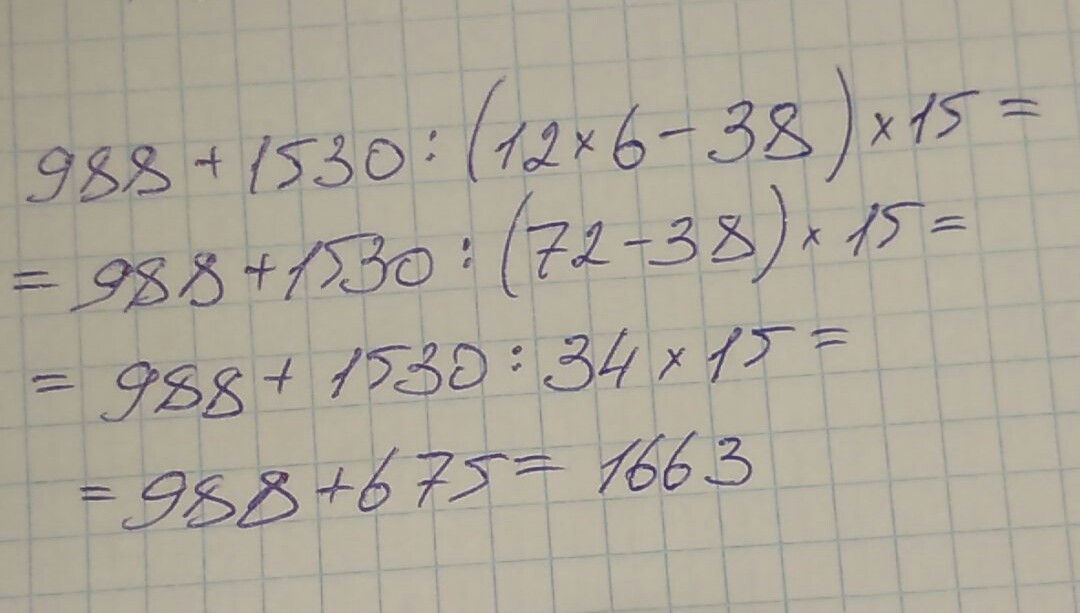 988 + 1530 : (12 × 6 - 38) × 15 =
= 988 + 1530 : (72 - 38) × 15 =
= 988 + 1530 : 34 × 15 =
= 988 + 675 = 1663